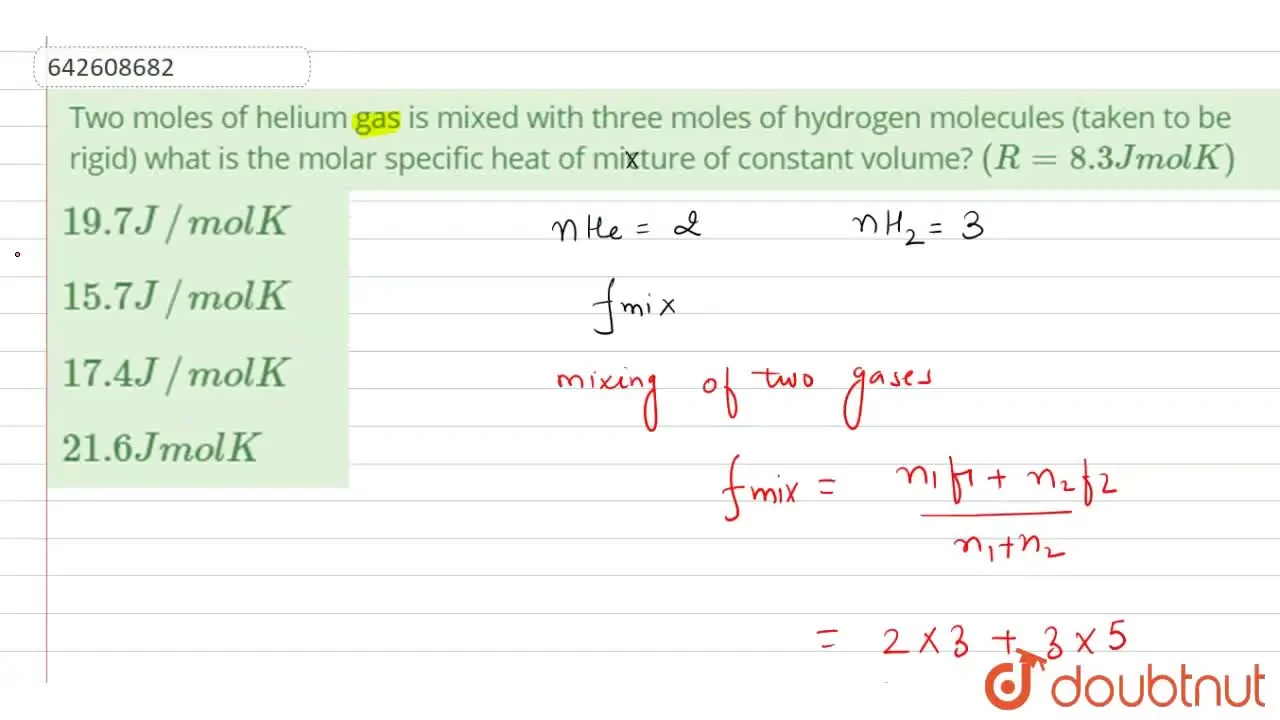 642608682
Two moles of helium gas is mixed with three moles of hydrogen molecules (taken to be
rigid) what is the molar specific heat of mixture of constant volume? (R = 8.3JmolK)
19.7J/molK
15.7J/molK
17.4J/molK
21.6JmolK
nHe = 2 nH₂ = 3
fmix
mixing of two gases
fmix = n₁f1 + n₂f2
n₁+n₂
= 2×3 + 3×5
doubtnut